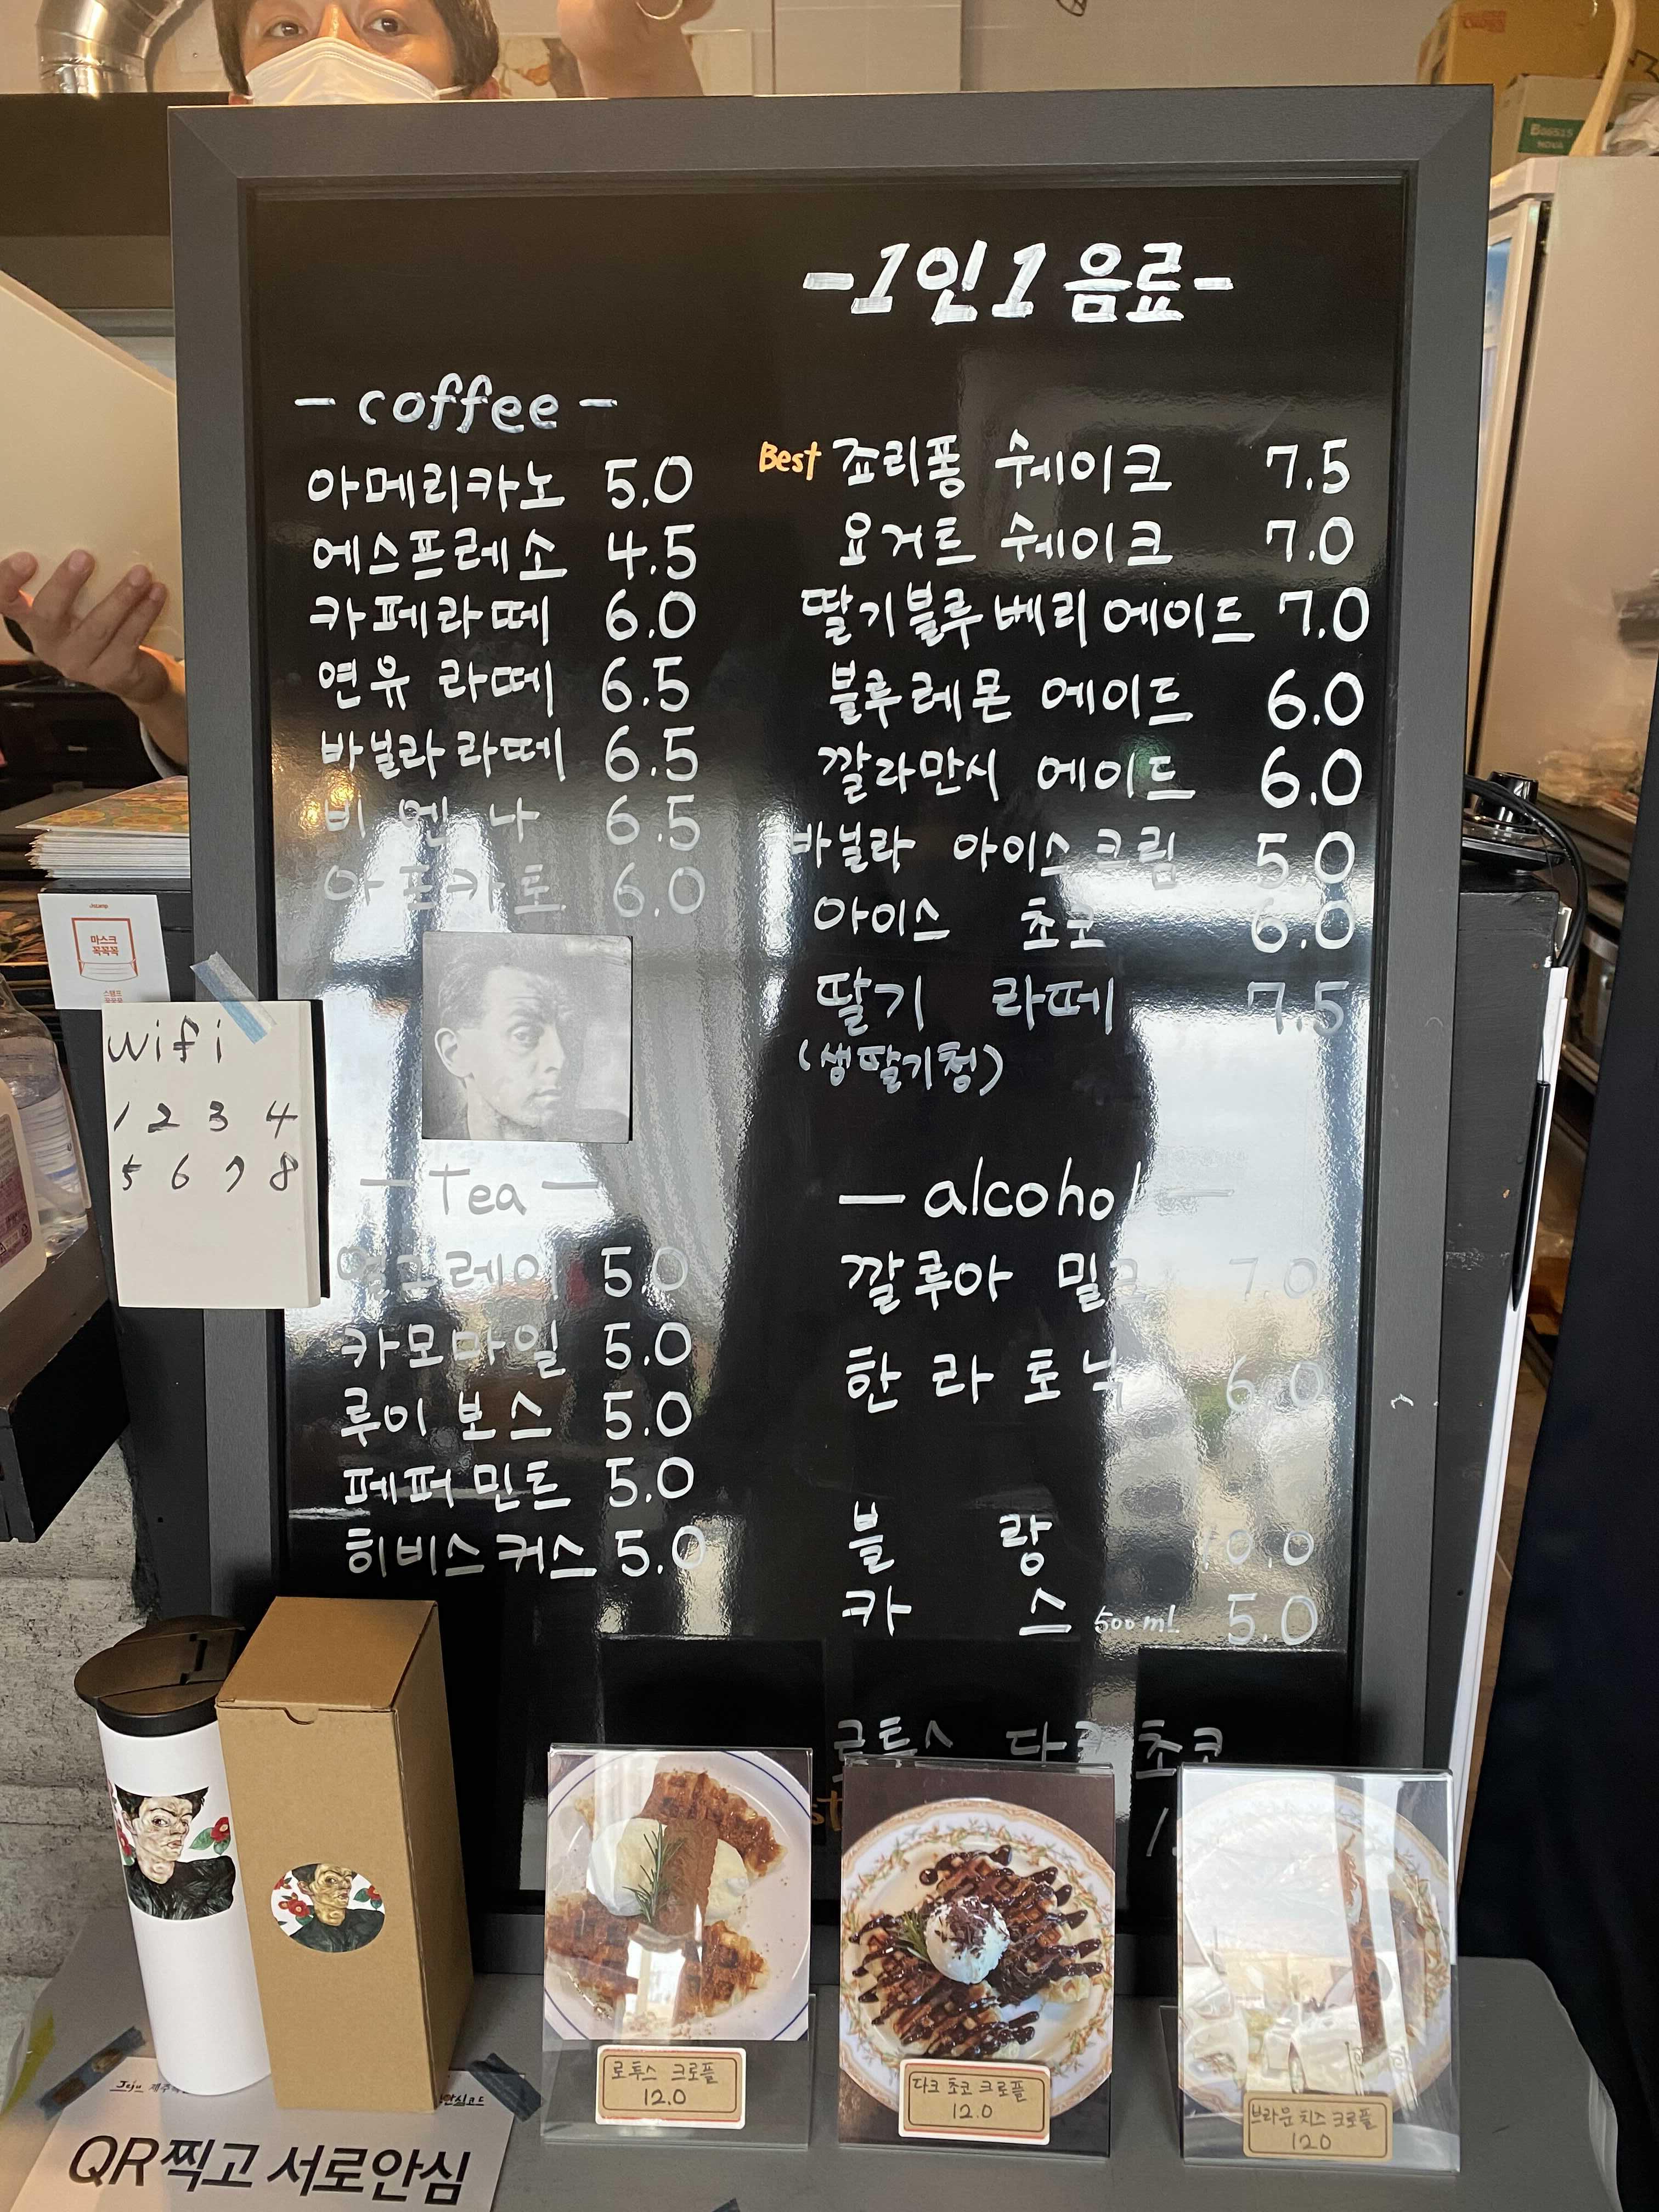 -1인1음료-
- coffee -
아메리카노 5.0
에스프레소 4.5
카페라떼 6.0
연유 라떼 6.5
바닐라 라떼 6.5
비엔나 6.5
아포카토 6.0
Best 죠리퐁 쉐이크 7.5
요거트 쉐이크 7.0
딸기블루베리에이드 7.0
블루레몬 에이드 6.0
깔라만시 에이드 6.0
바닐라 아이스크림 5.0
아이스 초코 6.0
딸기 라떼 7.5
(생딸기청)
- Tea -
얼그레이 5.0
카모마일 5.0
루이보스 5.0
페퍼민트 5.0
히비스커스 5.0
- alcohol -
깔루아 밀크 7.0
한라토닉 6.0
블랑 10.0
카스 500ml 5.0
로투스 다크 초코
마스크
꼭꼭꼭
wifi
1 2 3 4
5 6 7 8
로투스 크로플
12.0
다크 초코 크로플
12.0
브라운치즈 크로플
12.0
Jeju
안심코드
QR찍고 서로안심
B06515
NOVA